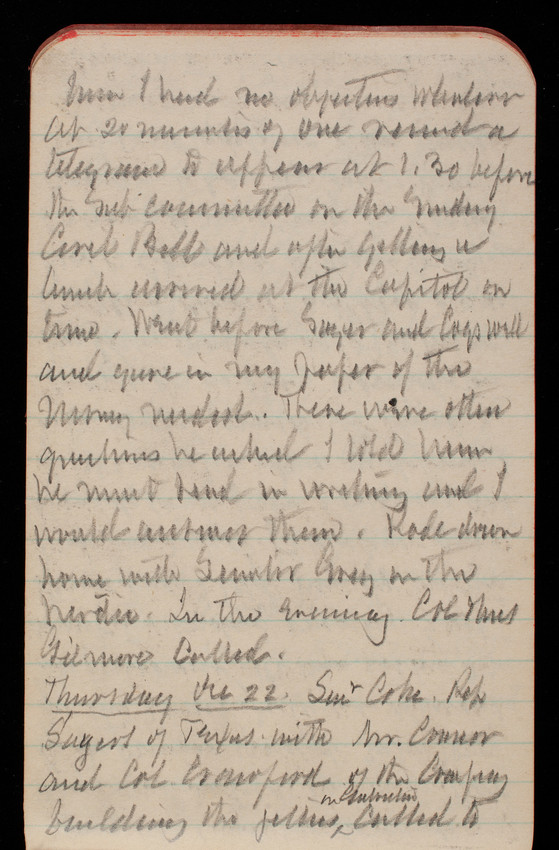 him I had no objections whatever
at 20 minutes of one received a
telegram to appear at 1.30 before
the Sub committee on the Sundry
Civil Bill and after getting a
lunch arrived at the Capitol on
time. Went before Sayer and Cogswell
and gave in my paper of the
Money needed. There were other
questions he asked I told him
he must send in writing and I
would answer them. Rode down
home with Senator Gray in the
herdic. In the evening Col
Gilmore called.
Thursday Dec 22. Sen Coke. Rep
Sayers of Texas with Mr. Connor
and Col Crawford of the Company
building the jetties, called to